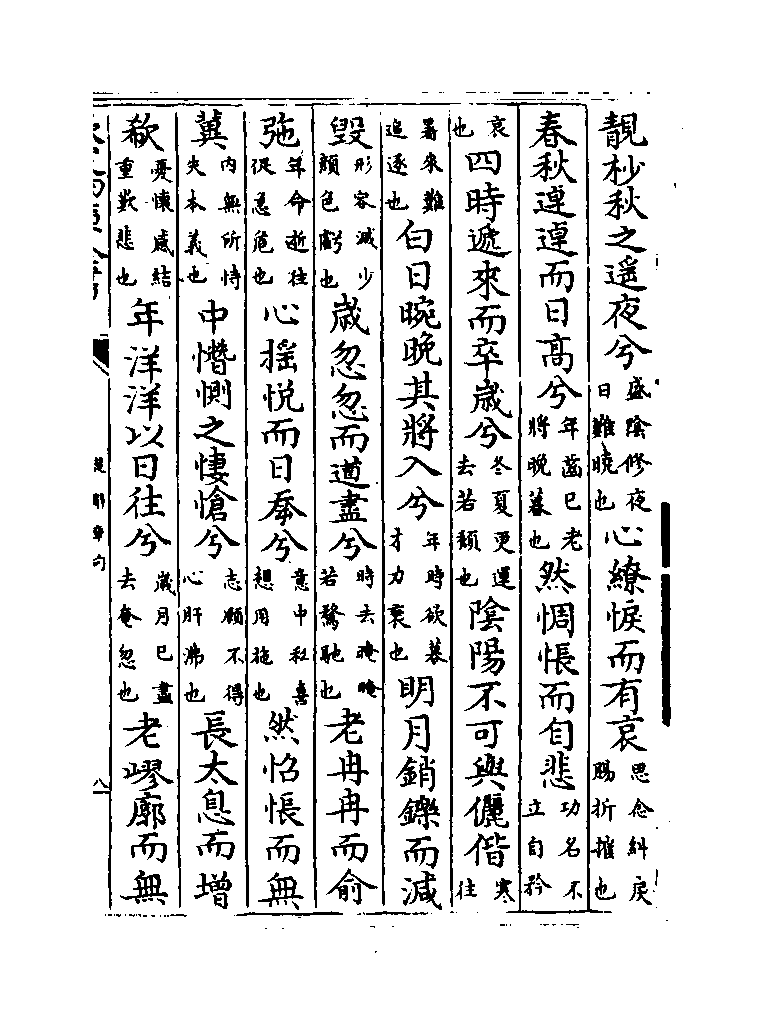 靚杪秋之遥夜兮盛隂修夜日難曉也心繚悷而有哀思念糾戾腸折摧也
春秋逴逴而日高兮年齒已老將晚暮也然惆悵而自悲功名不立自矜
哀也四時遞來而卒歲兮冬夏更運去若頽也隂陽不可與儷偕寒往
暑來難追逐也白日晼晚其將入兮年時欲暮才力衰也明月銷鑠而減
毀形容減少顔色虧也歲忽忽而遒盡兮時去晻晻若騖馳也老冉冉而俞
弛年命逝往促急危也心揺悦而日㚏兮意中私喜想用施也然怊悵而無
冀內無所恃失本義也中憯惻之悽愴兮志願不得心肝沸也長太息而增
欷憂懷感結重歎悲也年洋洋以日往兮歲月已盡去奄忽也老嵺廓而無
楚辭章句
八